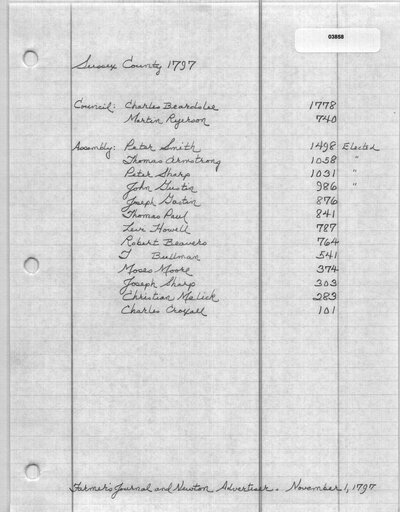 03858
Sussex County 1797
Council: Charles Beardslee 1778
Martin Ryerson 740
Assembly: Peter Smith 1498 Elected
Thomas Armstrong 1058 "
Peter Sharp 1031 "
John Gustin 986 "
Joseph Gaston 876
Thomas Paul 841
Levi Howell 787
Robert Beavers 764
J Bullman 541
Moses Moore 374
Joseph Sharp 303
Christian Melick 283
Charles Croxall 101
Farmer's Journal and Newton Advertiser. November 1, 1797